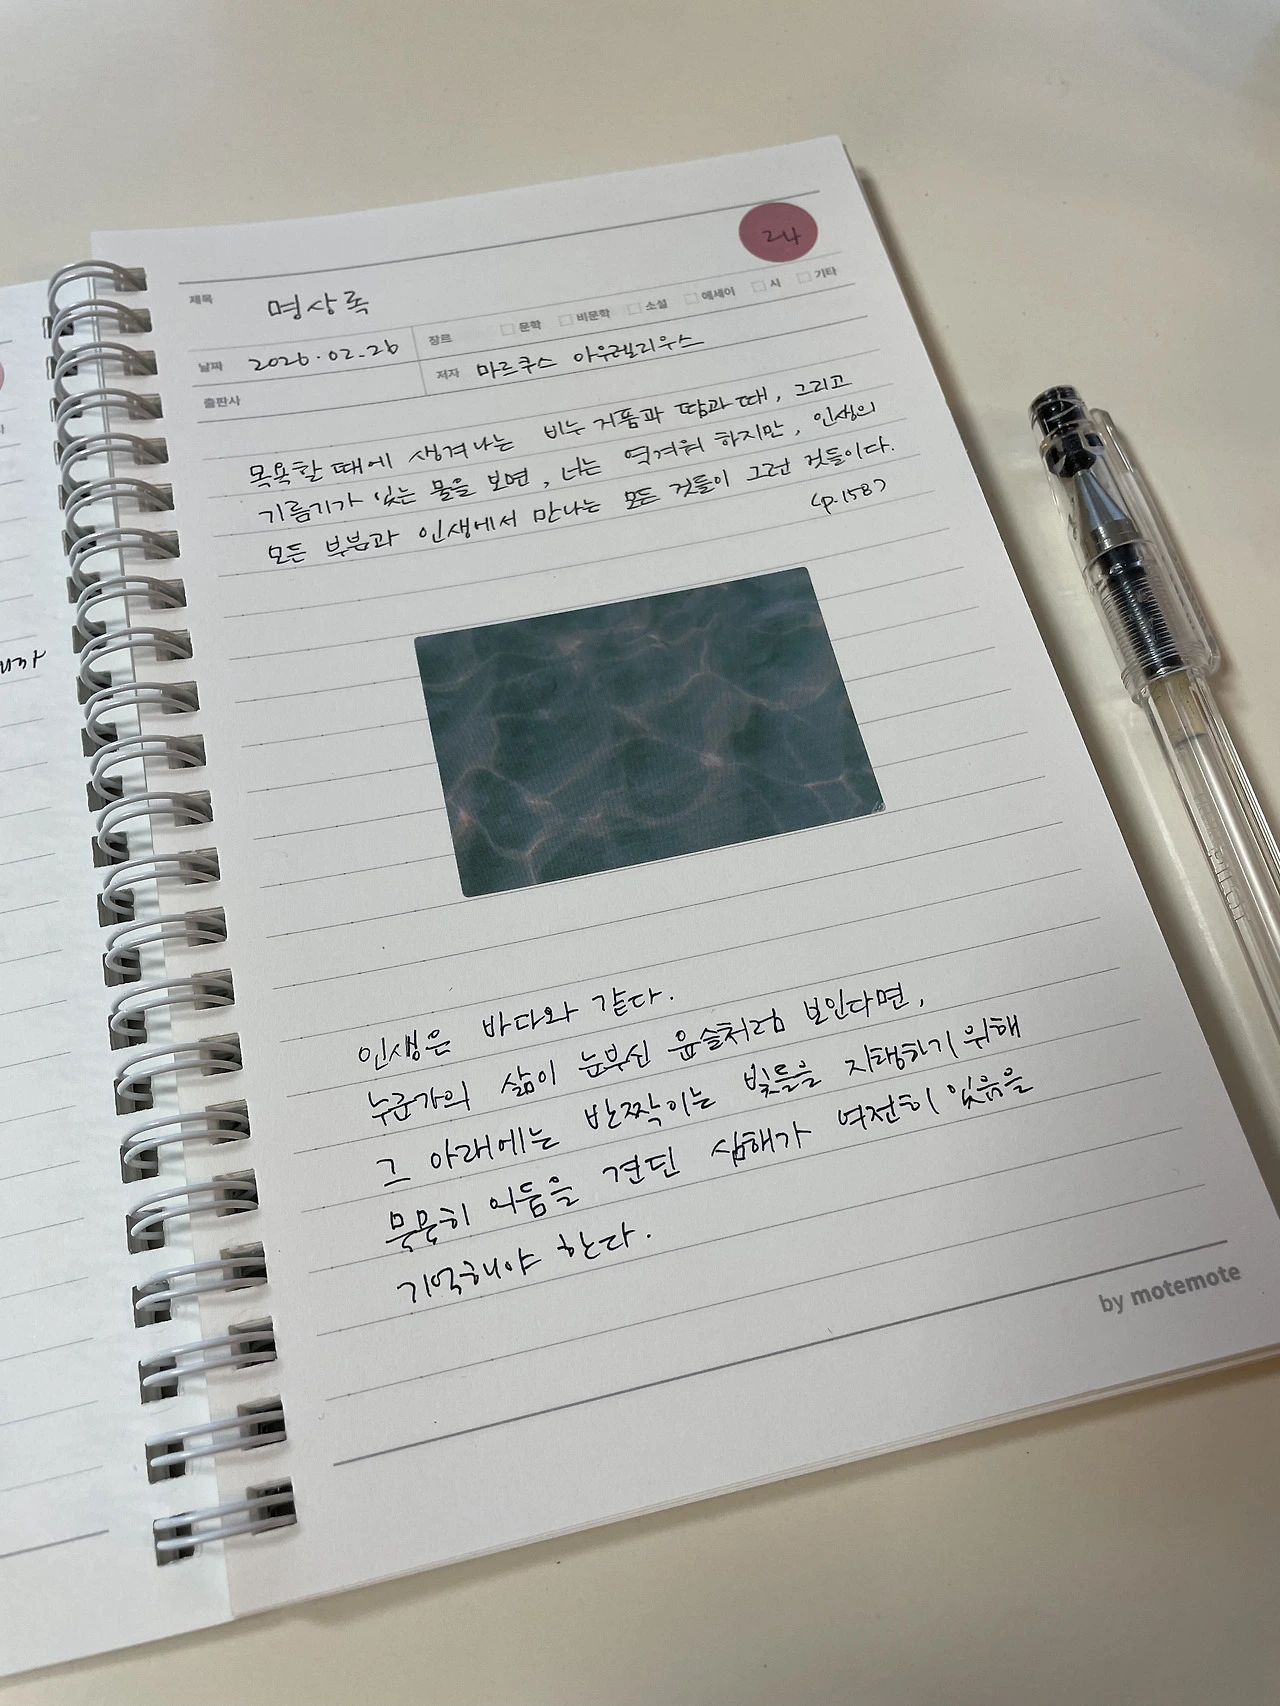 24
제목 명상록
장르 문학 비문학 소설 에세이 시 기타
날짜 2026.02.26
저자 마르쿠스 아우렐리우스
출판사
목욕할 때에 생겨나는 비누 거품과 땀과 때, 그리고
기름기가 있는 물을 보면, 너는 역겨워 하지만, 인생의
모든 부분과 인생에서 만나는 모든 것들이 그런 것들이다.
<p.158>
인생은 바다와 같다.
누군가의 삶이 눈부신 윤슬처럼 보인다면,
그 아래에는 반짝이는 빛들을 지탱하기 위해
묵묵히 어둠을 견딘 심해가 여전히 있음을
기억해야 한다.
by motemote
PILOT